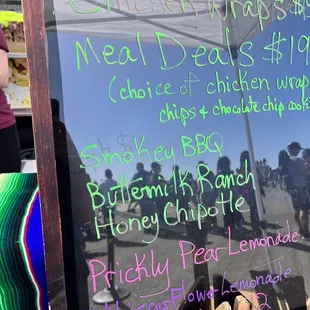 Chicken Wraps $
Meal Deals $19
(choice of chicken wrap
chips & chocolate chip cook
Smokey BBQ
Buttermilk Ranch
Honey Chipotle
Prickly Pear Lemonade
Flower Lemonade